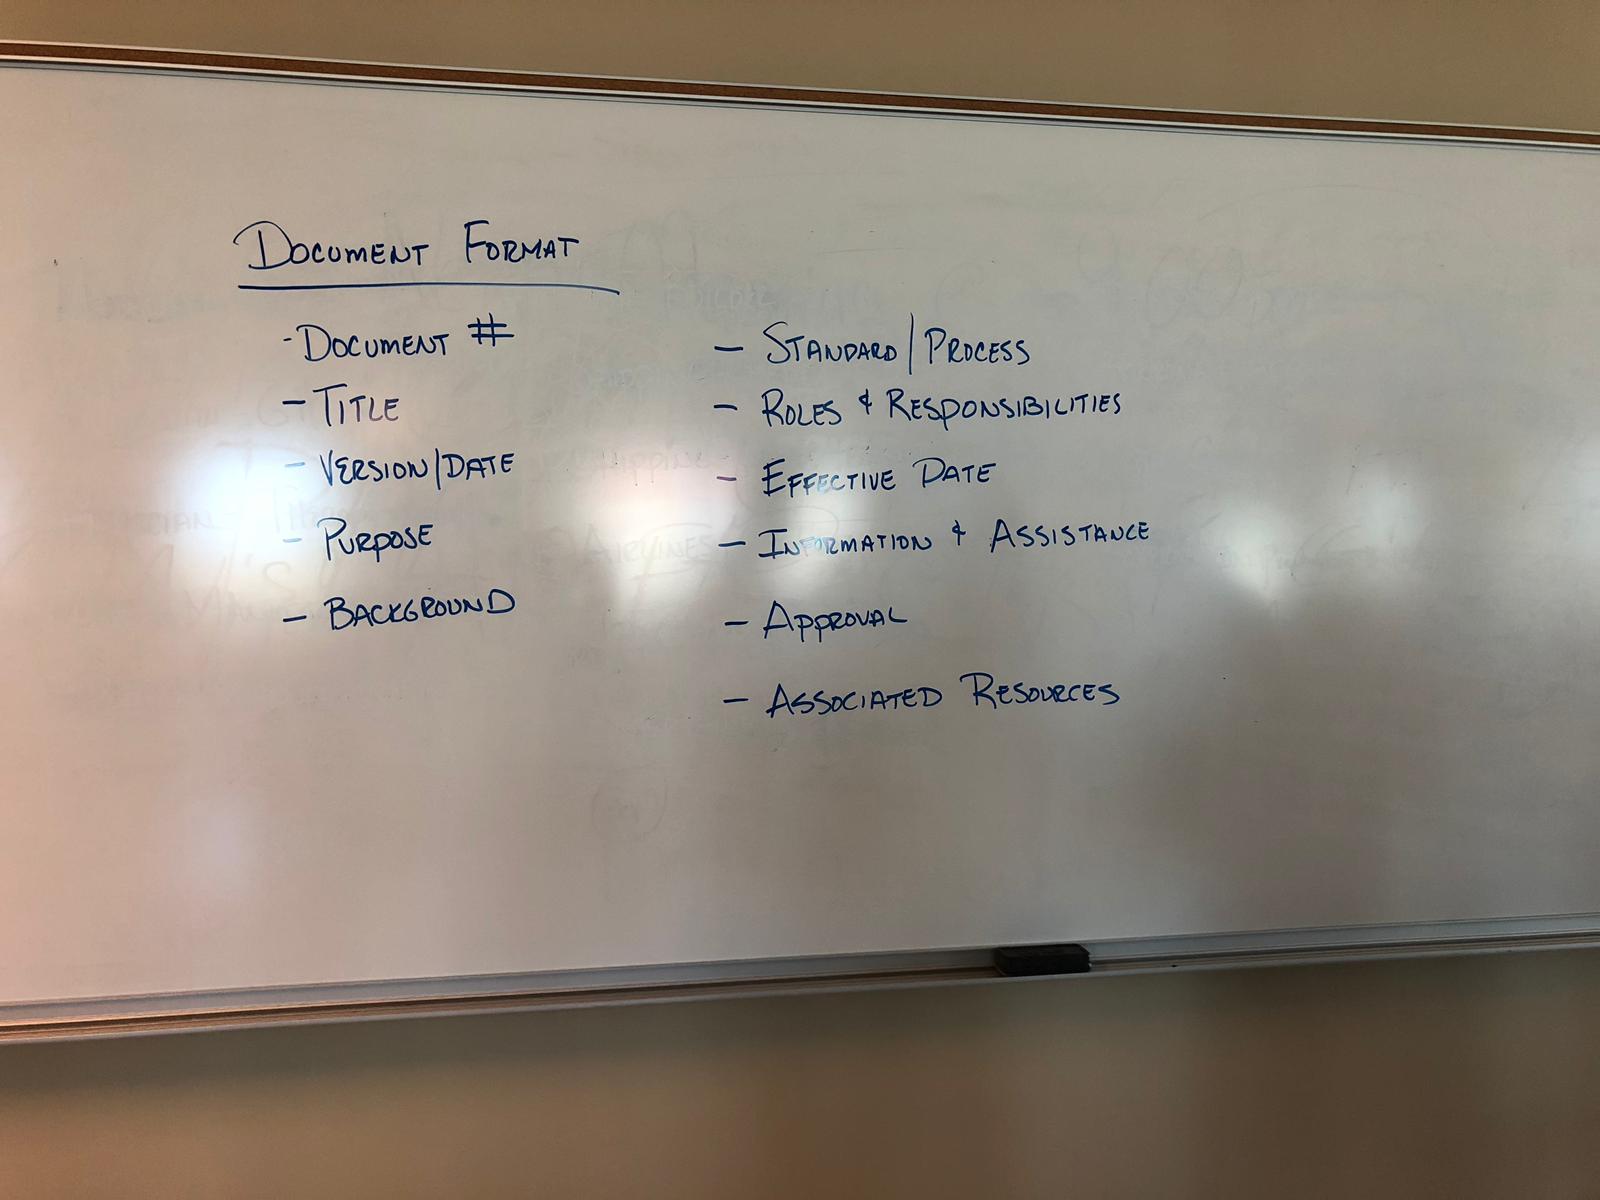 DOCUMENT FORMAT
- DOCUMENT #
- TITLE
- VERSION/DATE
- PURPOSE
- BACKGROUND
- STANDARD/PROCESS
- ROLES & RESPONSIBILITIES
- EFFECTIVE DATE
- INFORMATION & ASSISTANCE
- APPROVAL
- ASSOCIATED RESOURCES